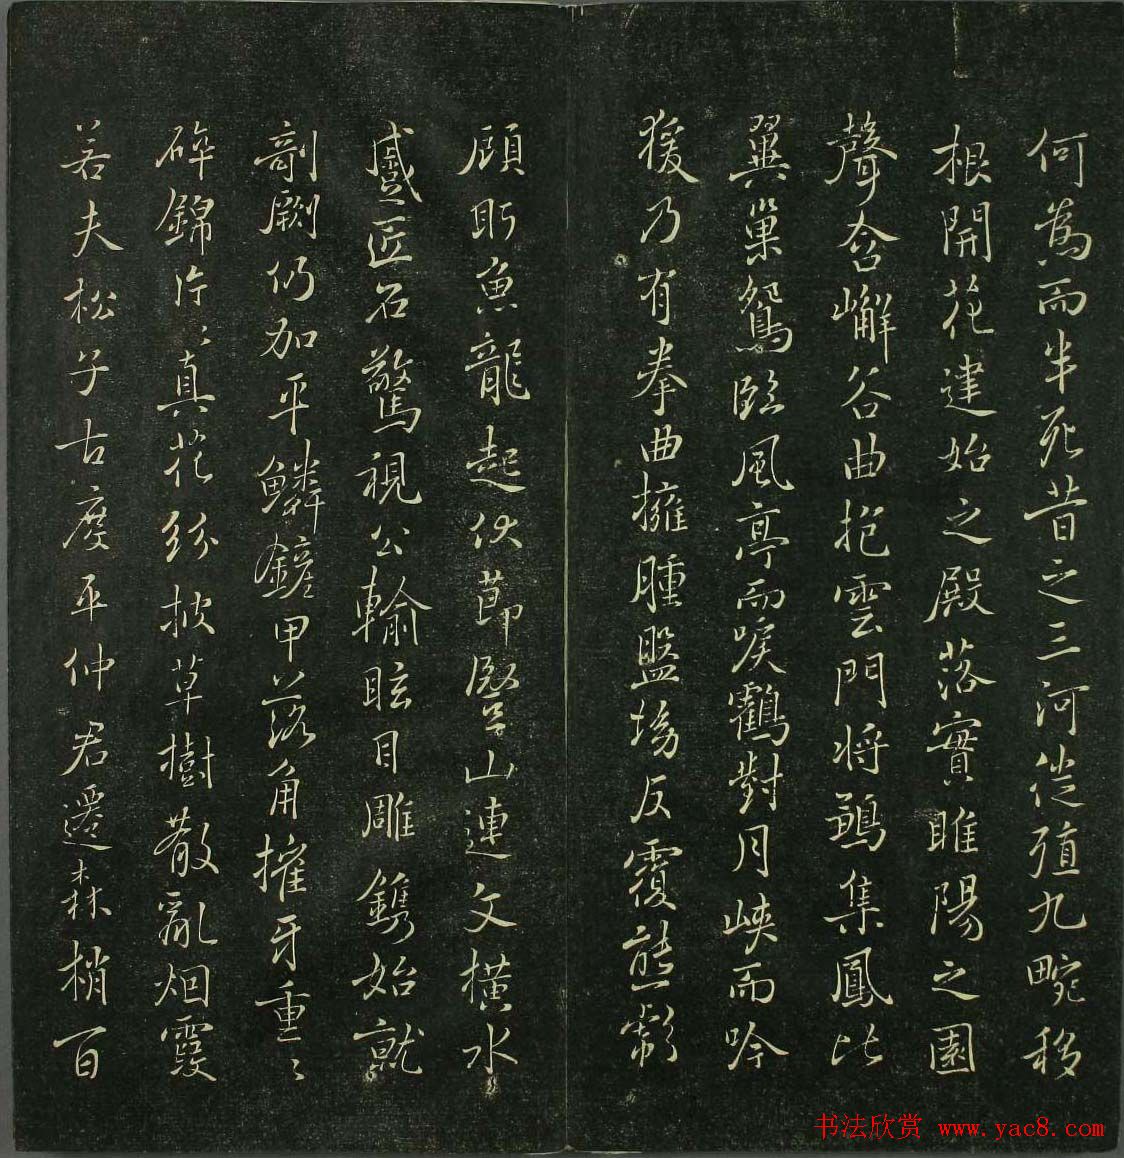 何為而半死昔之三河徙殖九畹移
根開花建始之殿落實睢陽之園
聲含嶰谷曲抱雲門將鶵集鳳比
翼巢鴛臨風亭而唳鶴對月峽而吟
猨乃有拳曲擁腫盤坳反覆熊彪
顧盼魚龍起伏節竪山連文橫水
蹙匠石驚視公輸眩目雕鐫始就
剞劂仍加平鱗鏟甲落角摧牙重〻
碎錦片〻真花紛披草樹散亂烟霞
若夫松子古度平仲君遷森梢百
书法欣赏 www.yac8.com